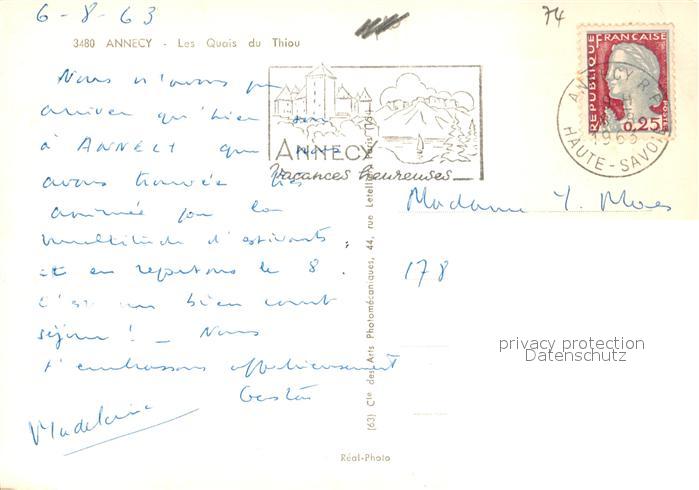 6-8-63
74
3480 ANNECY - Les Quais du Thiou
Nous n'avons pu
arriver qu'hier soir
à ANNECY que nous
avons trouvée très
animée par la
multitude d'estivants,
et en repartons le 8.
C'est un bien court
séjour! _ Nous
t'embrassons affectueusement
Gaston
Madeleine
ANNECY
Vacances heureuses
REPUBLIQUE FRANÇAISE
0,25
ANNECY R.P.
1963
HAUTE-SAVOIE
Madame Y.
178
(63) Cie des Arts Photomécaniques, 44, rue Letellier, Paris
privacy protection
Datenschutz
Réal-Photo